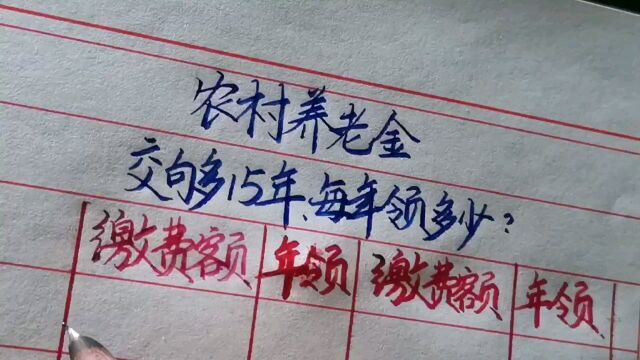 农村养老金
交句多15年、每年领多少?
缴费额 年领 缴费额 年领